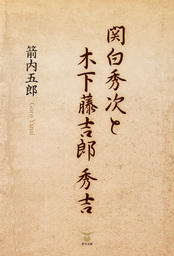 関白秀次と
木下藤吉郎 秀吉
箭内五郎
Goro Yanai